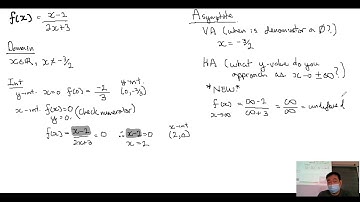 f(x) = x-2 / 2x+3
Domain
x∈ℝ, x≠-3/2
Int
y-int. x=0 f(0) = -2/3 y-int (0, -2/3)
x-int f(x)=0 (check numerator)
y=0.
f(x) = x-2 / 2x+3 = 0 ∴ x-2=0 x-int (2,0)
x=2
Asymptote
VA (when is denominator a 0?)
x = -3/2
HA (what y-value do you approach as x→±∞?)
*NEW*
f(x) x→∞ = ∞-2 / ∞+3 = ∞/∞ = undefined